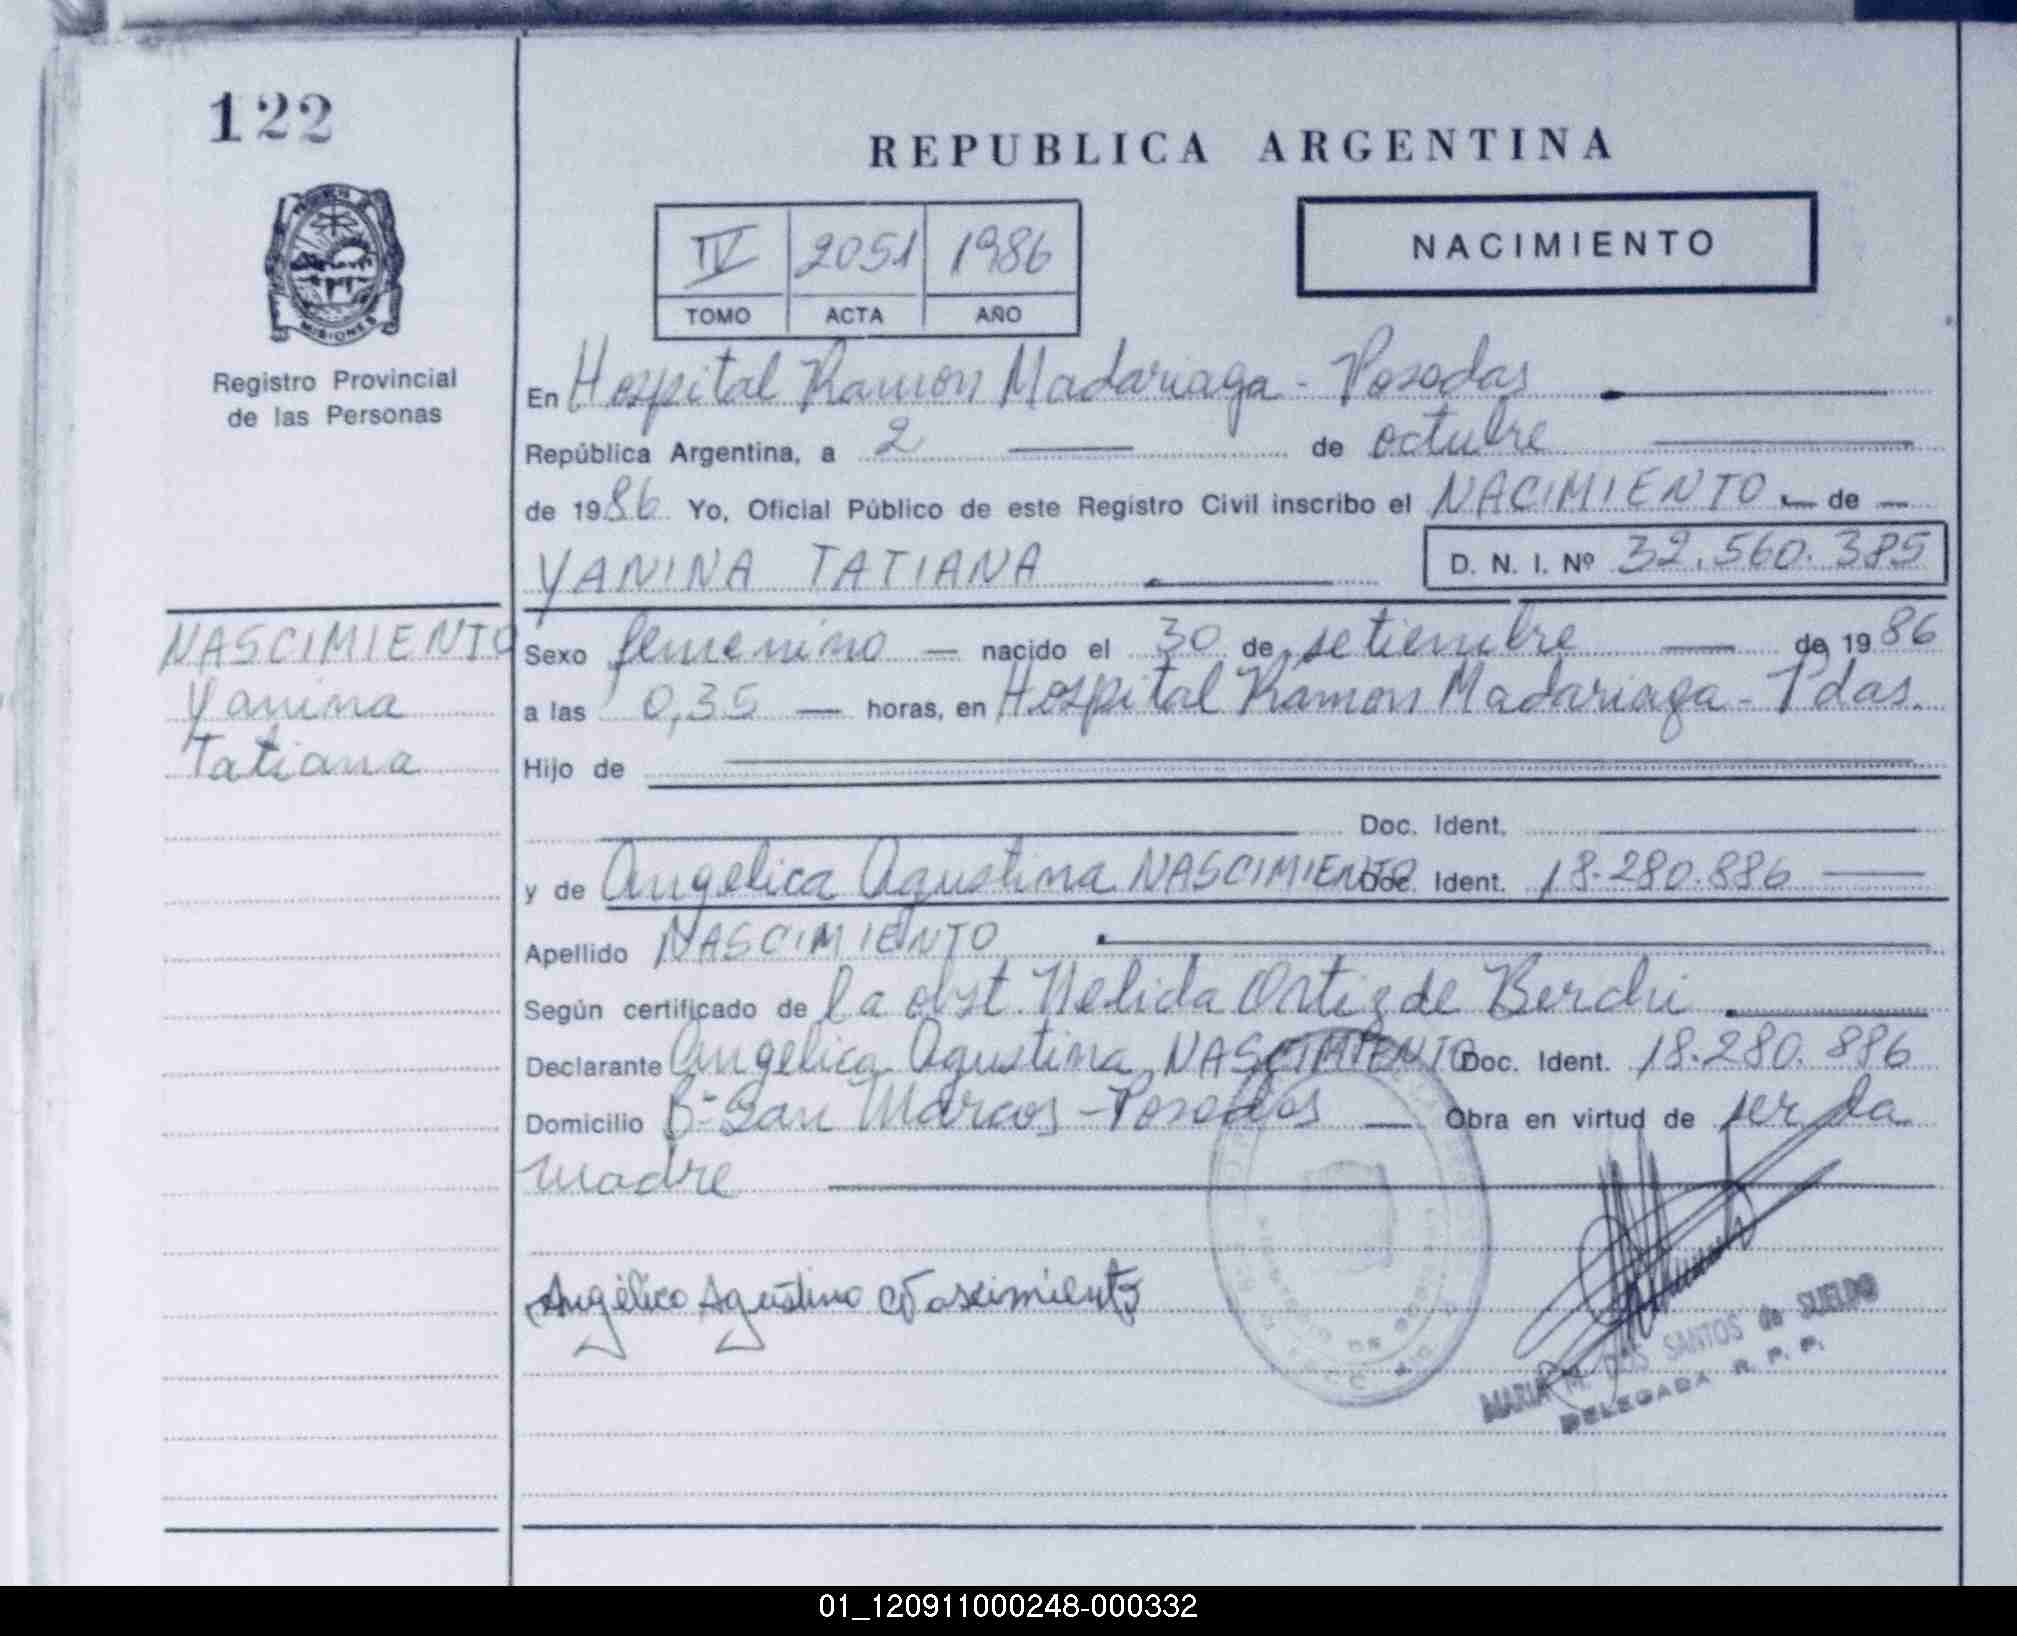 122
REPUBLICA ARGENTINA
IV 2051 1986
TOMO ACTA AÑO
NACIMIENTO
MISIONES
Registro Provincial
de las Personas
En Hospital Ramon Madariaga - Posadas
República Argentina, a 2 de octubre
de 1986 Yo, Oficial Público de este Registro Civil inscribo el NACIMIENTO de
YANINA TATIANA D. N. I. Nº 32.560.385
NASCIMIENTO
Yanina
Tatiana
Sexo femenino nacido el 30 de setiembre de 1986
a las 0,35 horas, en Hospital Ramon Madariaga - Pdas.
Hijo de
Doc. Ident.
y de Angelica Agustina NASCIMIENTO Doc. Ident. 18.280.886
Apellido NASCIMIENTO
Según certificado de la obst. Nelida Ortiz de Berchi
Declarante Angelica Agustina NASCIMIENTO Doc. Ident. 18.280.886
Domicilio Bº San Marcos - Posadas Obra en virtud de ser la
madre
Angélica Agustina Nascimiento
MARIA M. DOS SANTOS de SUELDO
DELEGADA R. P. P.
01_120911000248-000332